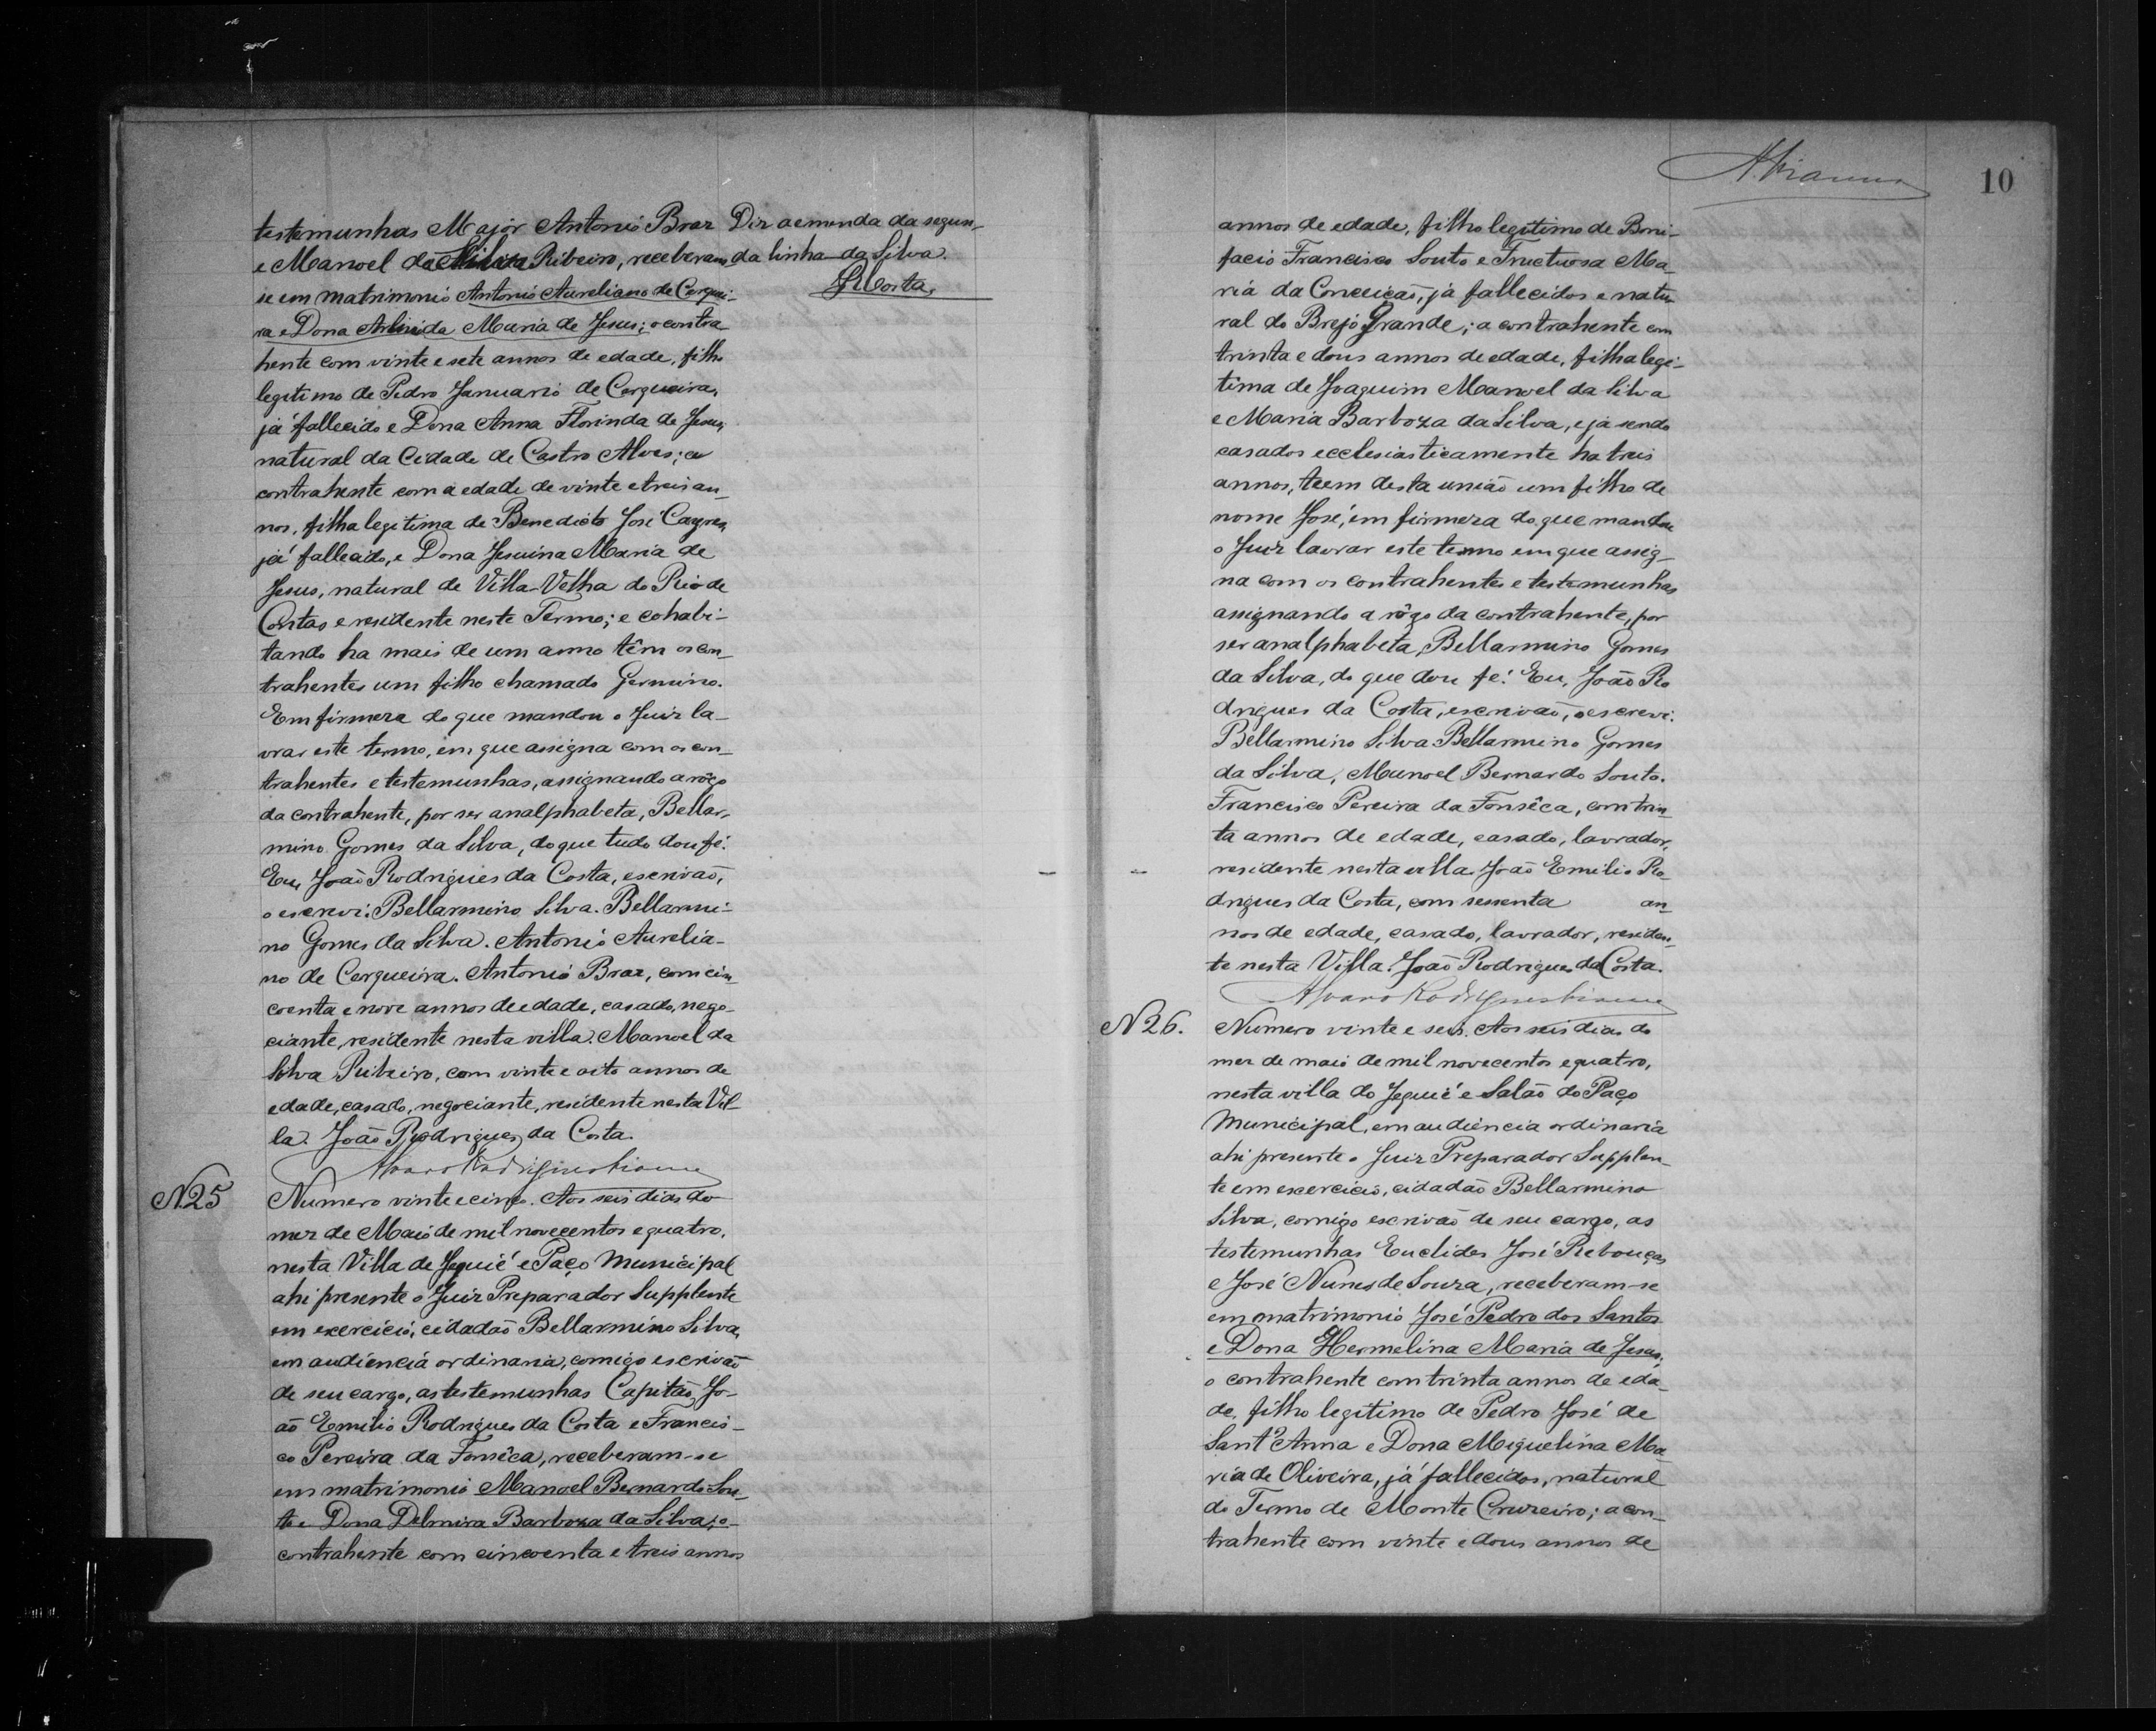 testemunhas Major Antonio Braz
e Manoel da Silva Ribeiro, receberam
se em matrimonio Antonio Aureliano de Cerquei-
ra e Dona Arlinda Maria de Jesus; o contra-
hente com vinte e sete annos de edade, filho
legitimo de Pedro Januario de Cerqueira,
já fallecido e Dona Anna Florinda de Jesus,
natural da Cidade de Castro Alves; a
contrahente com a edade de vinte e treis an-
nos, filha legitima de Benedicto José
já fallecido, e Dona Jesuina Maria de
Jesus, natural de Villa Velha do Rio de
Contas e residente neste Termo; e cohabi-
tando ha mais de um anno têm os con-
trahentes um filho chamado Germino.
Em firmeza do que mandou o Juiz la-
vrar este termo, em que assigna com os con-
trahentes e testemunhas, assignando a rôgo
da contrahente, por ser analphabeta, Bellar-
mino Gomes da Silva, do que tudo dou fé.
Eu, João Rodrigues da Costa, escrivão,
o escrevi. Bellarmino Silva. Bellarmi-
no Gomes da Silva. Antonio Aurelia-
no de Cerqueira. Antonio Braz, com cin-
coenta e nove annos de edade, casado, nego-
ciante, residente nesta villa. Manoel da
Silva Ribeiro, com vinte e oito annos de
edade, casado, negociante, residente nesta Vil-
la. João Rodrigues da Costa.
Alvaro Rodrigues Vianna
Diz a emenda da segun-
da linha da Silva.
Costa
N 25
Numero vinte e cinco. Aos seis dias do
mez de Maio de mil novecentos e quatro,
nesta Villa de Jequié e Paço Municipal
ahi presente o Juiz Preparador Supplente
em exercicio, cidadão Bellarmino Silva,
em audiencia ordinaria, comigo escrivão
de seu cargo, as testemunhas Capitão Jo-
ão Emilio Rodrigues da Costa e Francis-
co Pereira da Fonsêca, receberam-se
em matrimonio Manoel Bernardo Sou-
to e Dona Delmira Barboza da Silva; o
contrahente com cincoenta e treis annos
A. Vianna
10
annos de edade, filho legitimo de Boni-
facio Francisco Souto e Fructuosa Ma-
ria da Conceição, já fallecidos e natu-
ral do Brejo Grande; a contrahente com
trinta e dous annos de edade, filha legi-
tima de Joaquim Manoel da Silva
e Maria Barboza da Silva, e já sendo
casados ecclesiasticamente ha treis
annos, teem desta união um filho de
nome José, em firmeza do que mandou
o Juiz lavrar este termo em que assig-
na com os contrahentes e testemunhas
assignando a rôgo da contrahente, por
ser analphabeta, Bellarmino Gomes
da Silva, do que dou fé. Eu, João Ro
drigues da Costa, escrivão, o escrevi.
Bellarmino Silva. Bellarmino Gomes
da Silva, Manoel Bernardo Souto.
Francisco Pereira da Fonsêca, com trin
ta annos de edade, casado, lavrador,
residente nesta villa. João Emilio Ro-
drigues da Costa, com sessenta an-
nos de edade, casado, lavrador, residen-
te nesta Villa. João Rodrigues da Costa.
Alvaro Rodrigues Vianna
N 26.
Numero vinte e seis. Aos seis dias do
mez de maio de mil novecentos e quatro,
nesta villa do Jequié e Salão do Paço
Municipal, em audiencia ordinaria
ahi presente o Juiz Preparador Supplen-
te em exercicio, cidadão Bellarmino
Silva, comigo escrivão de seu cargo, as
testemunhas Euclides José Rebouças
e José Nunes de Souza, receberam-se
em matrimonio José Pedro dos Santos
e Dona Hermelina Maria de Jesus;
o contrahente com trinta annos de eda-
de, filho legitimo de Pedro José de
Sant'Anna e Dona Miquelina Ma
ria de Oliveira, já fallecidos, natural
do Termo de Monte Cruzeiro; a con-
trahente com vinte e dous annos de